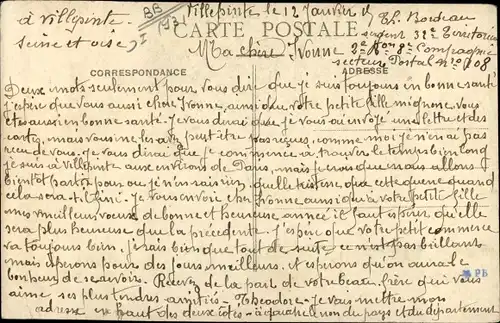 à Villepinte
Seine et oise
Villepinte le 12 Janvier 15
Th. Bordeau
sergent 32e Territorial
CARTE POSTALE
2e 8e Compagnie
Ma chère Yvonne
secteur Postal No 108
CORRESPONDANCE
ADRESSE
Deux mots seulement pour vous dire que je suis toujours en bonne santé
j'espère que vous aussi chère Yvonne, ainsi que votre petite fille mignonne vous
êtes aussi en bonne santé. Je vous dirai que je vous ai envoyé une lettre et des
cartes, mais vous ne les avez peut être pas reçues, comme moi je n'en ai pas
reçu de vous. Je vous dirai que je commence à trouver le temps bien long
je suis à Villepinte aux environs de Paris, mais je crois que nous allons
bientôt partir pour où je n'en sais rien, quelle triste que cette guerre quand
cela sera-t-il fini. Je vous envoie chère Yvonne ainsi qu'à votre petite fille
mes meilleurs vœux de bonne et heureuse année il faut espérer qu'elle
sera plus heureuse que la précédente. J'espère que votre petit commerce
va toujours bien. pas bien que tout de suite ce n'est pas brillant
mais espérons pour des jours meilleurs. et espérons qu'on aura le
bonheur de se revoir. Recevez de la part de votre beau frère qui vous
aime ses plus tendres amitiés - Théodore - Je vous mettre mon
adresse en haut des deux côtés - à cause le nom du pays et du département